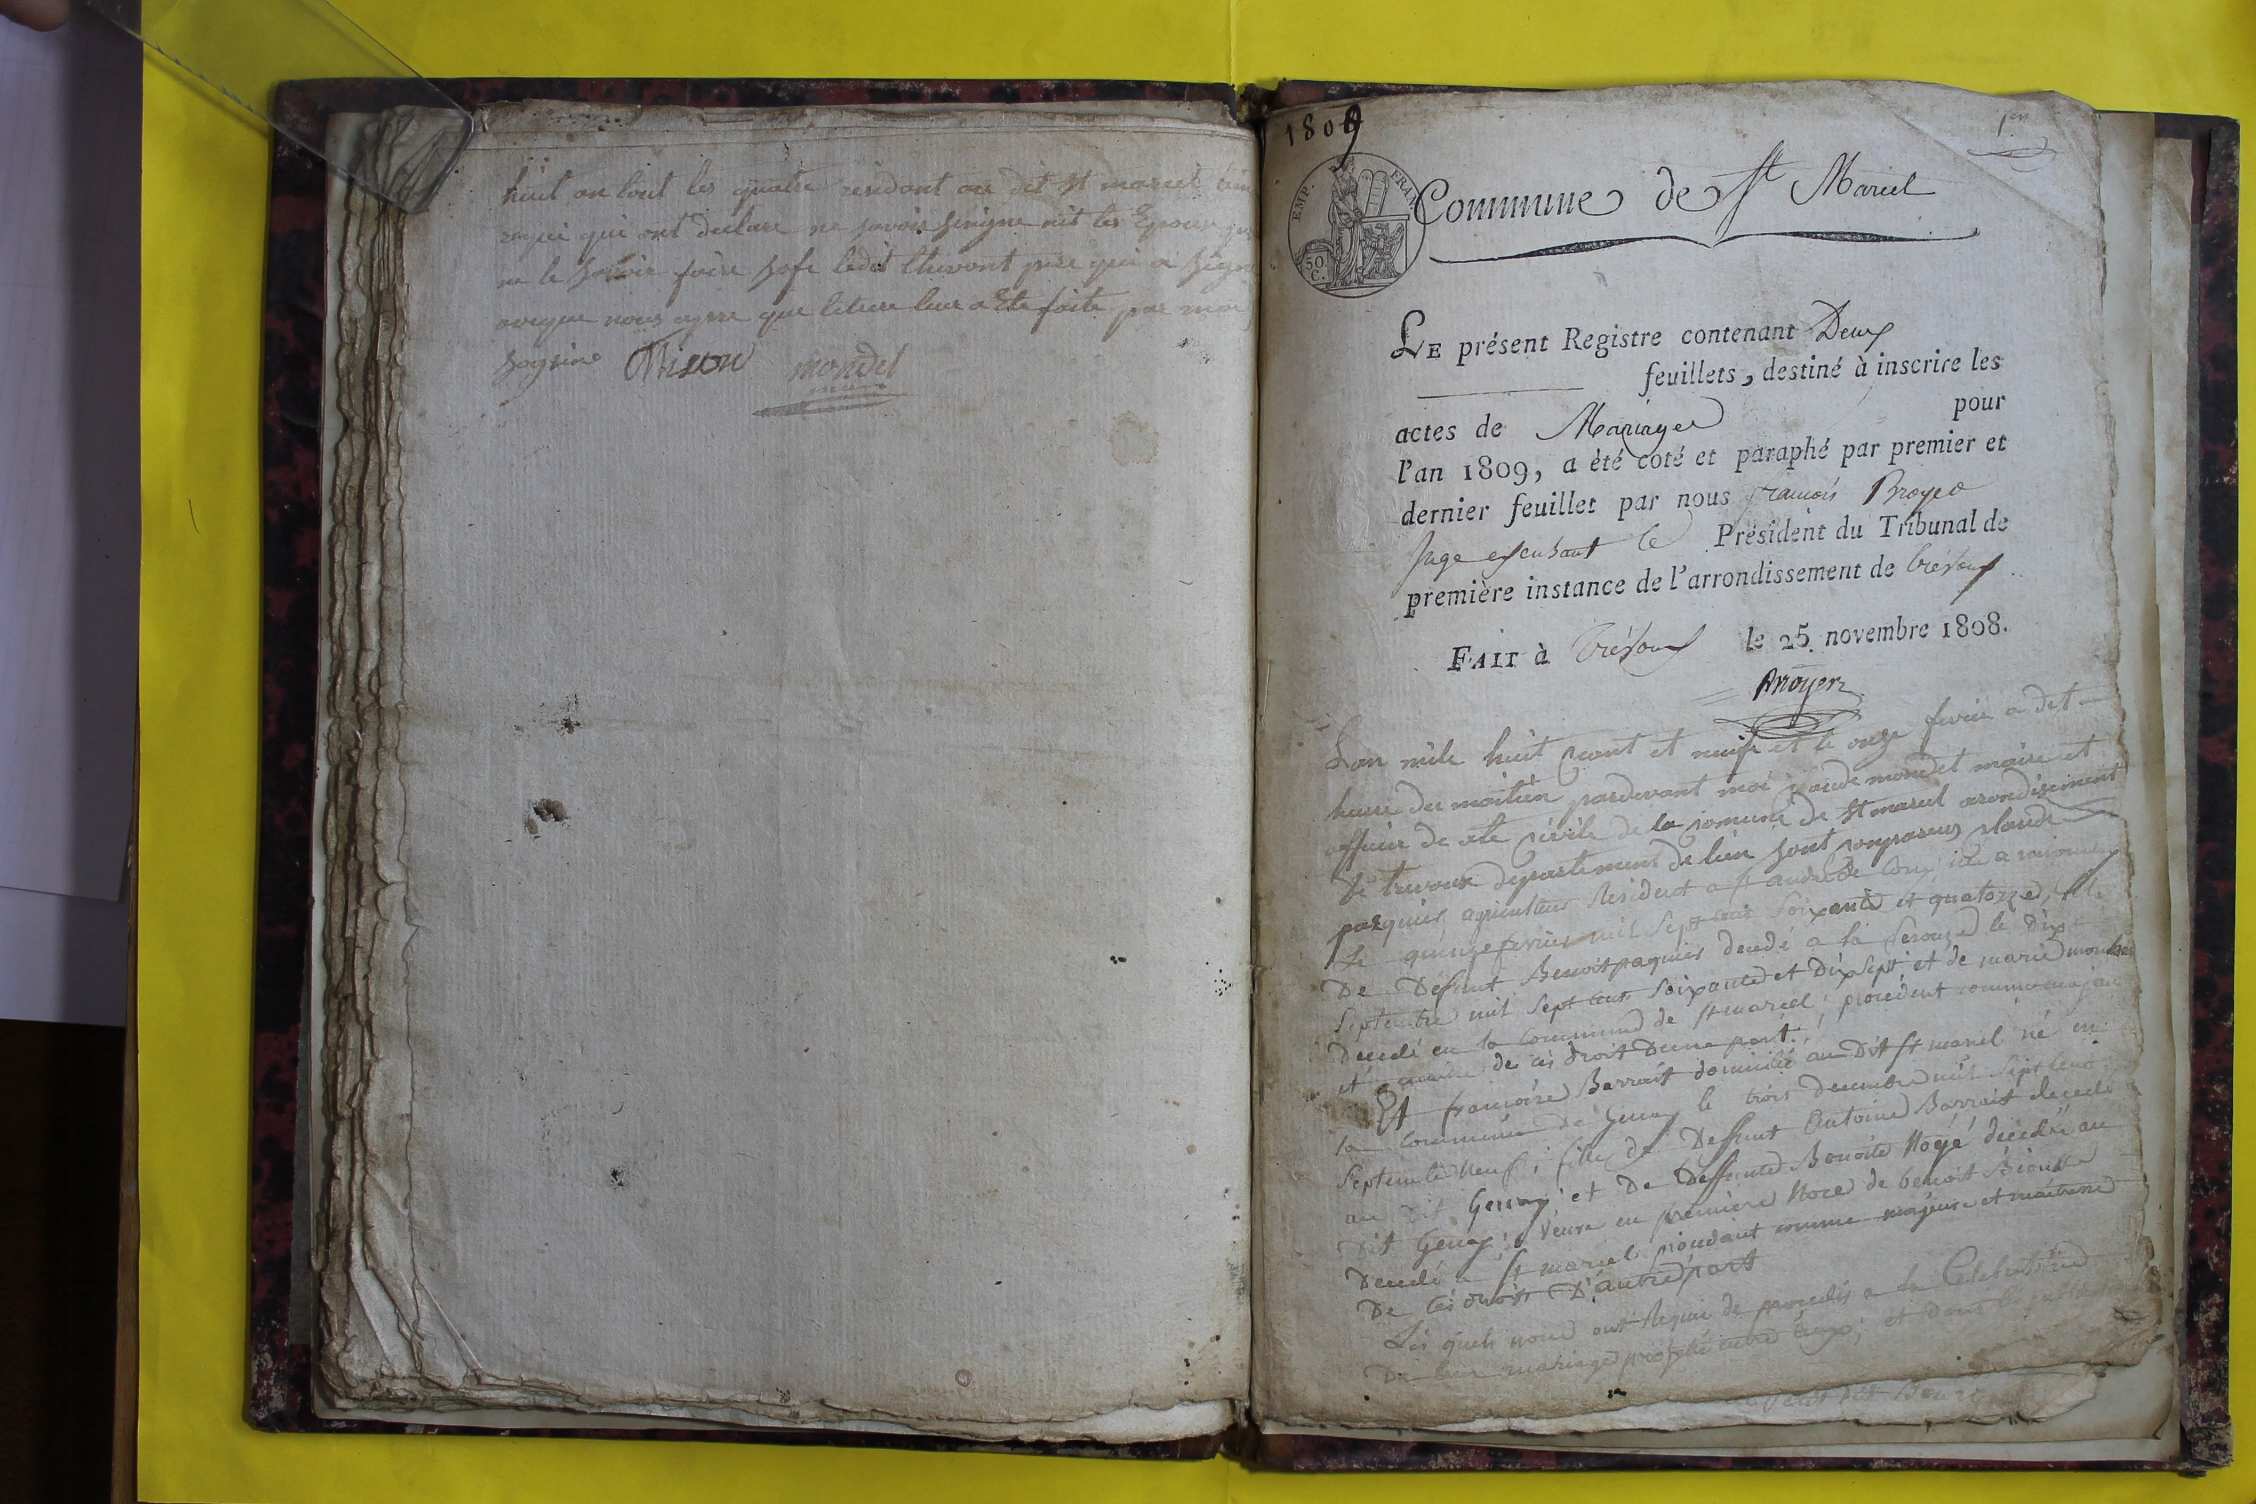 huit on tout les quatre residant au dit St marcel
qui ont declare ne savoir signe nit les Epoux
ne le savoir faire sofe ledit thevont pere qui a signe
aveque nous apres que leture leur a Ete faite par moi
Thison mondel
1809
1er
EMP. FRAN
50 C.
Commune de St Marcel
LE présent Registre contenant Deux
feuillets, destiné à inscrire les
actes de Mariages pour
l'an 1809, a été coté et paraphé par premier et
dernier feuillet par nous francois Broyer
Juge exerçant le Président du Tribunal de
première instance de l'arrondissement de trévoux
FAIT à trévoux le 25 novembre 1808.
Broyer
Lan mile huit cent et neuf et le onze fevrier a det
heure du maitien pardevant moi claude mondet maire et
officier de eta civile de la comune de St marcel arondisement
de trevoux departement de lein sont comparus claude
pasquier agriculteur Résidant a St andré de Corcy né a
Le quinze fevrier mil Sept cent Soixante et quatorze, fils
De Défunt Benoit paquier decedé a la perouze le Dix
Septembre mil Sept cent Soixante et Dix Sept et de marie
Decedé en la Commune de St marcel; procedent comme majeur
et maitre de ces droit D'une part.
Et francoise Barrait domicilié au Dit St marcel né en
la Commune de Genay le trois Decembre mil Sept Cent
Septente Neuf; fille de Deffunt Antoine Barrait decedé
au Dit Genay et De Deffunte Benoite Noyé decedée au
Dit Genay; Veuve en premiere Noce de benoit
Decedé a St marcel procedant comme majeure et maitresse
De Ces droits D'autre part
Les quels nous ont Requis de procedés a la Celebration
De leur mariage projetté entre Eux; et dont les